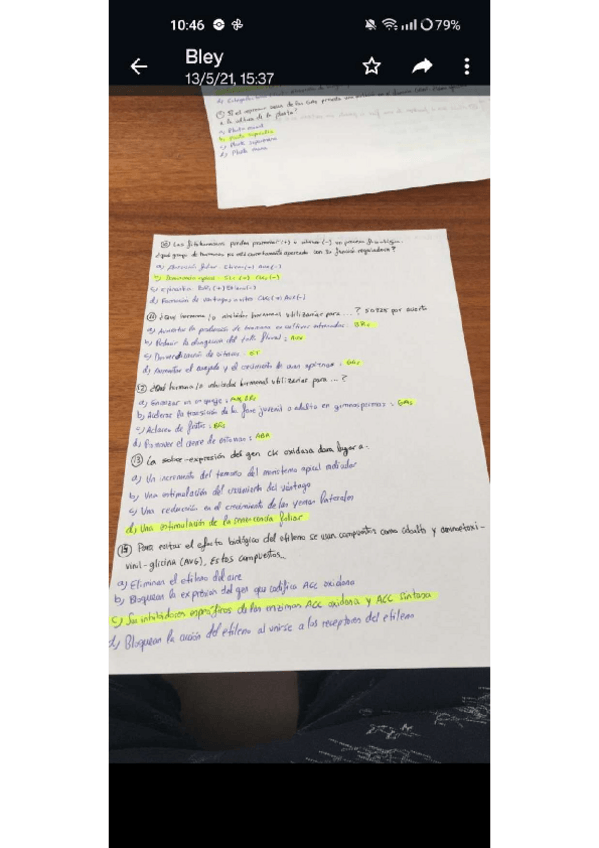 10:46
79%
Bley
13/5/21, 15:37
a la altura de la planta?
a) Planta enana
d) Planta enana
⑩ Las fitohormonas pueden promover (+) o inhibir (-) un proceso fisiológico.
¿Qué grupo de hormonas no está correctamente apareado con su función reguladora?
a) Abscisión foliar: Etileno(+) Aux(-)
b) Dominancia apical: SLs (+) CKs (-)
d) Formación de vástagos in vitro CKs(+) AUX(-)
⑪ ¿Qué hormona/o inhibidor hormonal utilizarías para ...?
a) Aumentar la producción de
b) Reducir la elongación del tallo floral: 
c) Desverdización de cítricos: ET
d) Aumentar el cuajado y el crecimiento de uvas apirenas: GAs
⑫ ¿Qué hormona/o inhibidor hormonal utilizarías para ...?
a) Enraizar un esqueje:
b) Acelerar la transición de la fase juvenil a adulta en gimnospermas: GAs
c) Aclareo de frutos:
d) Promover el cierre de estomas: ABA
⑬ La sobre-expresión del gen CK oxidasa dará lugar a:
a) Un incremento del tamaño del meristemo apical radicular
b) Una estimulación del crecimiento del vástago
c) Una reducción en el crecimiento de las yemas laterales
d) Una estimulación de la senescencia foliar
Para evitar el efecto biológico del etileno se usan compuestos como cobalto y aminoetoxi-
vinil-glicina (AVG), Estos compuestos...
a) Eliminan el etileno del aire
b) Bloquean la expresión del gen que codifica ACC oxidasa
c) Son inhibidores específicos de las enzimas ACC oxidasa y ACC sintasa
d) Bloquean la acción del etileno al unirse a los receptores del etileno